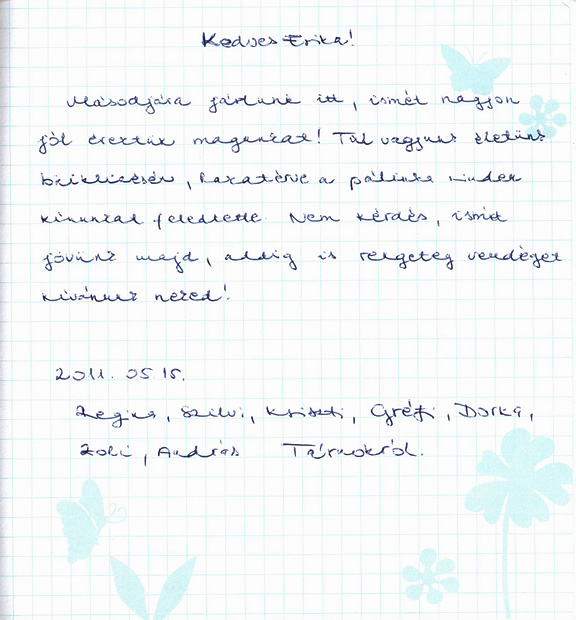 Kedves Erika!
Másodjára jártunk itt, ismét nagyon
jól éreztük magunkat! Túl vagyunk életünk
biciklizésén, hazatérve a pálinka minden
kínunkat feledtette. Nem kérdés, ismét
jövünk majd, addig is rengeteg vendéget
kívánunk neked!
2011. 05 15.
Regina, Szilvi, Kriszti, Gréti, Dorka,
Zoli, András Tárnokról.